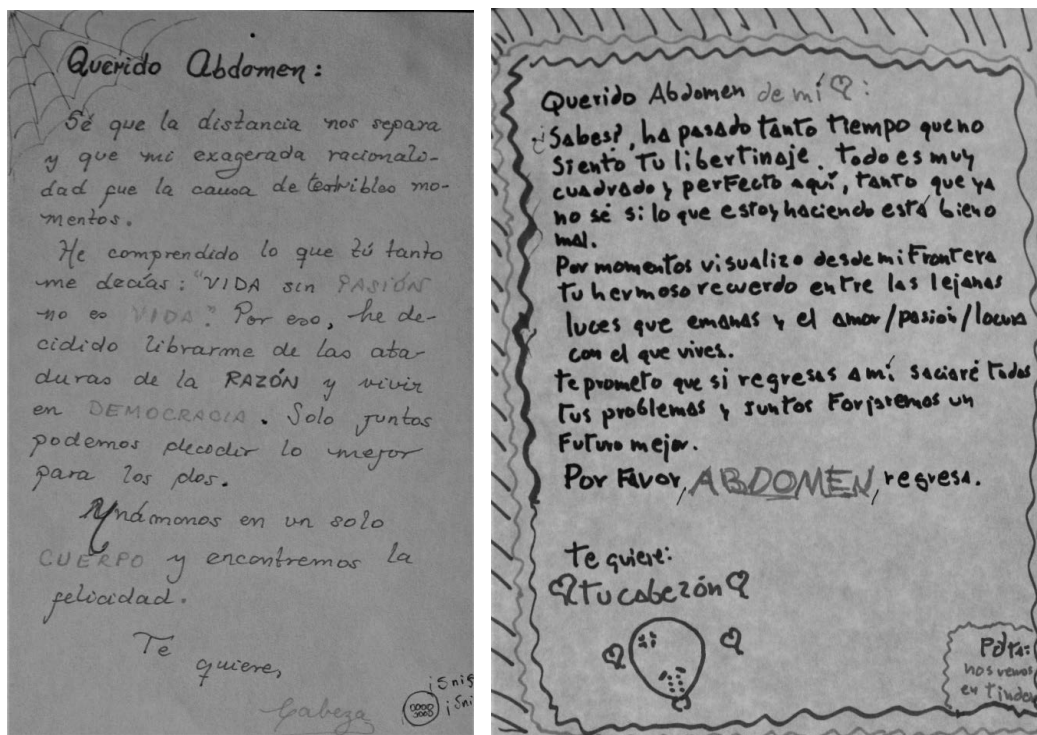 Querido Abdomen:
Sé que la distancia nos separa
y que mi exagerada racionali-
dad fue la causa de terribles mo-
mentos.
He comprendido lo que tú tanto
me decías: "VIDA sin PASIÓN
no es VIDA". Por eso, he de-
cidido librarme de las ata-
duras de la RAZÓN y vivir
en DEMOCRACIA. Solo juntos
podemos decidir lo mejor
para los dos.
Unámonos en un solo
CUERPO y encontremos la
felicidad.
Te
quiere,
Cabeza
¡Snif
¡Sni
Querido Abdomen de mí:
¿Sabes?, ha pasado tanto tiempo que no
siento tu libertinaje. Todo es muy
cuadrado y perfecto aquí, tanto que ya
no sé si lo que estoy haciendo está bien o
mal.
Por momentos visualizo desde mi frontera
tu hermoso recuerdo entre las lejanas
luces que emanas y el amor/pasión/locura
con el que vives.
Te prometo que si regresas a mí saciaré todos
tus problemas y juntos forjaremos un
futuro mejor.
Por Favor, ABDOMEN, regresa.
Te quiere:
Tu cabezón
Pdta:
nos vemos
en Tinder